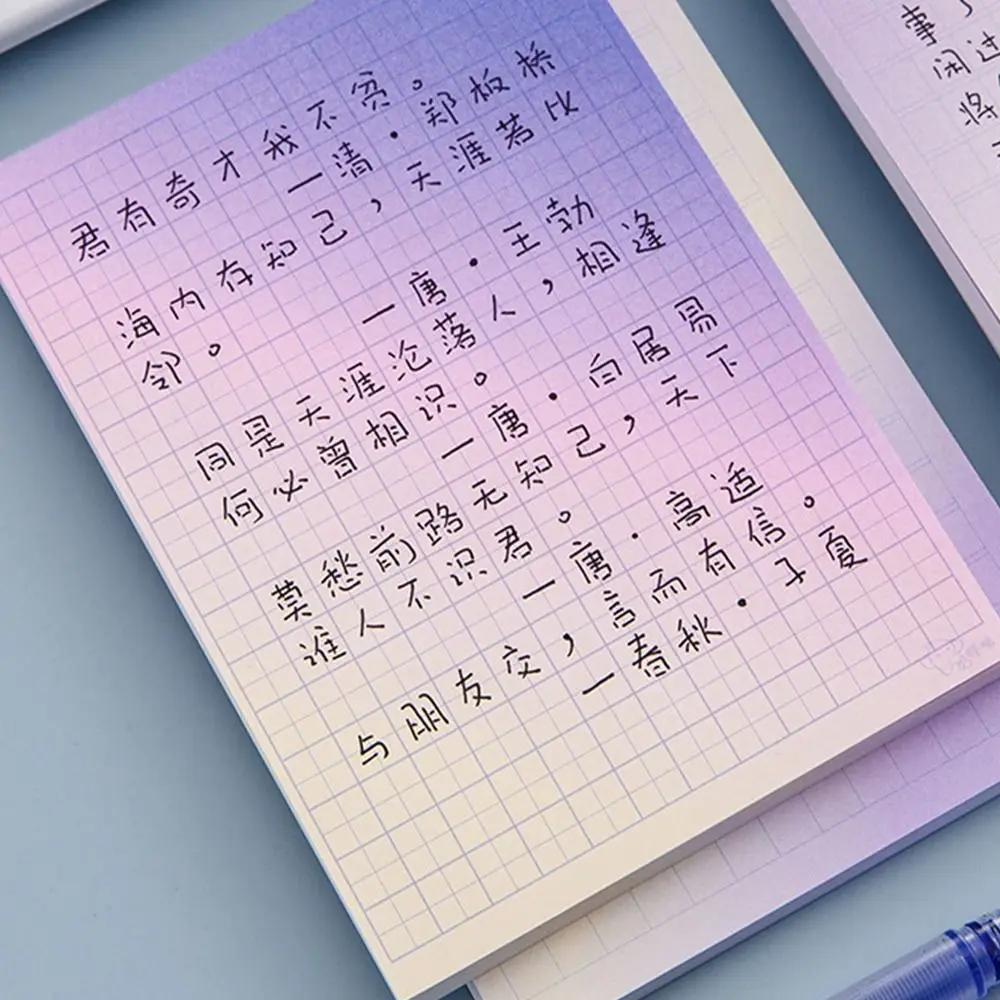 君有奇才我不贫。
一清·郑板桥
海内存知己,天涯若比
邻。 一唐·王勃
同是天涯沦落人,相逢
何必曾相识。
一唐·白居易
莫愁前路无知己,天下
谁人不识君。
一唐·高适
与朋友交,言而有信。
一春秋·子夏
事
闲过
将